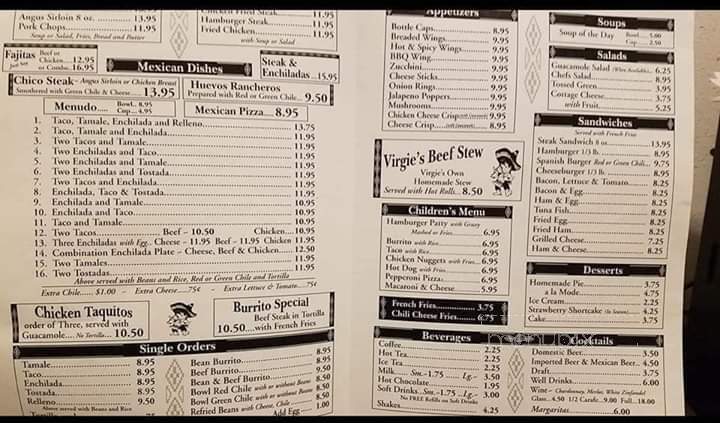 Angus Sirloin 8 oz. 13.95
Pork Chops 11.95
Soup or Salad, Fries, Bread and Butter
Chicken Fried Steak 11.95
Hamburger Steak 11.95
Fried Chicken 11.95
with Soup or Salad
Fajitas Beef or
Chicken 12.95
or Combo. 16.95
Mexican Dishes
Steak &
Enchiladas 15.95
Chico Steak - Angus Sirloin or Chicken Breast
Smothered with Green Chile & Cheese 13.95
Huevos Rancheros
Prepared with Red or Green Chile 9.50
Menudo Bowl. 8.95
Cup 4.95
Mexican Pizza 8.95
1. Taco, Tamale, Enchilada and Relleno 13.75
2. Taco, Tamale and Enchilada 11.95
3. Two Tacos and Tamale 11.95
4. Two Enchiladas and Taco 11.95
5. Two Enchiladas and Tamale 11.95
6. Two Enchiladas and Tostada 11.95
7. Two Tacos and Enchilada 11.95
8. Enchilada, Taco & Tostada 11.95
9. Enchilada and Tamale 10.95
10. Enchilada and Taco 10.95
11. Taco and Tamale 10.95
12. Two Tacos Beef - 10.50 Chicken 10.95
13. Three Enchiladas with Egg Cheese - 11.95 Beef - 11.95 Chicken 11.95
14. Combination Enchilada Plate - Cheese, Beef & Chicken 12.50
15. Two Tamales 11.95
16. Two Tostadas 11.95
Above served with Beans and Rice, Red or Green Chile and Tortilla
Extra Chile $1.00 - Extra Cheese 75¢ - Extra Lettuce & Tomato 75¢
Chicken Taquitos
order of Three, served with
Guacamole No Tortilla 10.50
Burrito Special
Beef Steak in Tortilla
10.50 with French Fries
Single Orders
Tamale 8.95
Taco 8.95
Enchilada 8.95
Tostada 8.95
Relleno 9.50
Above served with Beans and Rice
Bean Burrito 8.95
Beef Burrito 9.50
Bean & Beef Burrito 8.50
Bowl Red Chile with or without Beans 8.50
Bowl Green Chile with or without Beans 8.50
Refried Beans with Cheese, Chile 8.50
Add Egg 1.00
Appetizers
Bottle Caps 8.95
Breaded Wings 9.95
Hot & Spicy Wings 9.95
BBQ Wing 9.95
Zucchini 9.95
Cheese Sticks 9.95
Onion Rings 9.95
Jalapeno Poppers 9.95
Mushrooms 9.95
Chicken Cheese Crisp 9.95
Cheese Crisp 8.95
Virgie's Beef Stew
Virgie's Own
Homemade Stew
Served with Hot Rolls 8.50
Children's Menu
Hamburger Patty with Gravy
Mashed or Fries 6.95
Burrito with Rice 6.95
Taco with Rice 6.95
Chicken Nuggets with Fries 6.95
Hot Dog with Fries 6.95
Pepperoni Pizza 6.95
Macaroni & Cheese 5.95
French Fries 3.75
Chili Cheese Fries 6.75
Beverages
Coffee 2.25
Hot Tea 2.25
Ice Tea 2.25
Milk Sm.-1.75 Lg.- 3.50
Hot Chocolate 1.95
Soft Drinks Sm.-1.75 Lg.- 3.00
No FREE Refills on Soft Drinks
Shakes 4.25
Soups
Soup of the Day Bowl 5.00
Cup 2.50
Salads
Guacamole Salad (When Available) 6.25
Chefs Salad 8.95
Tossed Green 3.95
Cottage Cheese 3.75
with Fruit 5.25
Sandwiches
Served with French Fries
Steak Sandwich 8 oz 13.95
Hamburger 1/3 lb. 8.95
Spanish Burger Red or Green Chile 9.75
Cheeseburger 1/3 lb. 8.95
Bacon, Lettuce & Tomato 8.25
Bacon & Egg 8.25
Ham & Egg 8.25
Tuna Fish 8.25
Fried Egg 8.25
Fried Ham 8.25
Grilled Cheese 7.25
Ham & Cheese 8.25
Desserts
Homemade Pie 3.75
a la Mode 4.75
Ice Cream 2.25
Strawberry Shortcake (In Season) 4.25
Cake 3.75
menupix
Cocktails
Domestic Beer 3.50
Imported Beer & Mexican Beer 4.50
Draft 3.75
Well Drinks 6.00
Wine - Chardonnay, Merlot, White Zinfandel
Glass 4.50 1/2 Carafe 9.00 Full 18.00
Margaritas 6.00